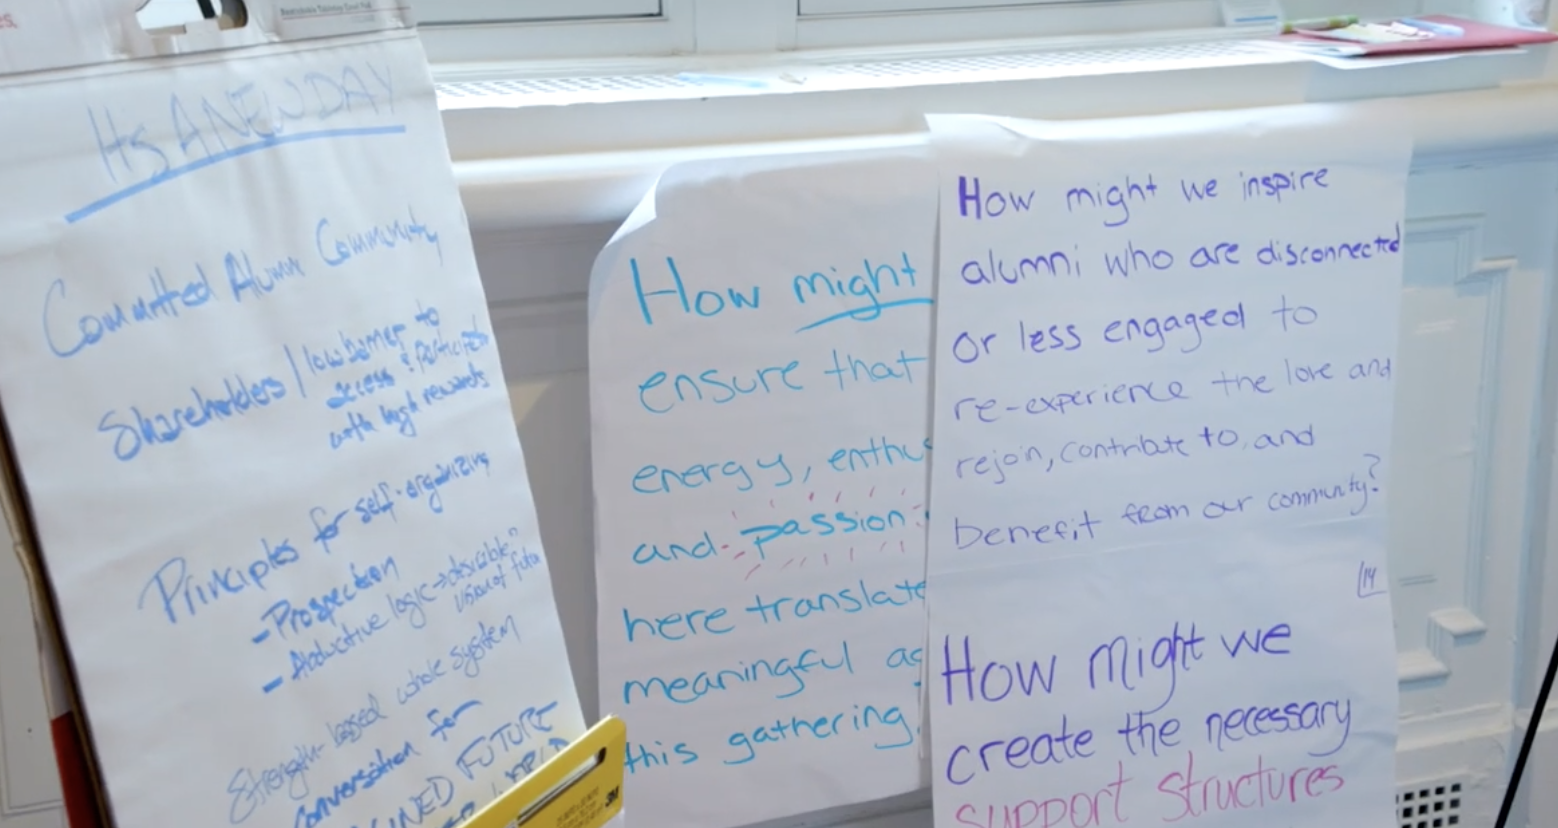 ITS A NEW DAY
Committed Alumni Community
Shareholders / low barrier to
access & participate
with high rewards
Principles for self-organizing
- Prospection
- Abductive logic → desirable
vision of future
Strength-based whole system
conversation for
FUTURE
How might
ensure that
energy, enthus
and passion
here translate
meaningful ac
this gathering
How might we inspire
alumni who are disconnected
or less engaged to
re-experience the love and
rejoin, contribute to, and
benefit from our community?
14
How might we
create the necessary
support structures
3M